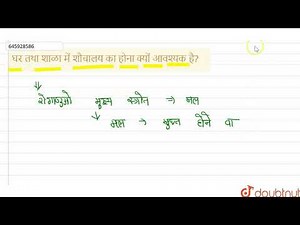 645928586
घर तथा शाला में शौचालय का होना क्यों आवश्यक है?
रोगाणुओं मुख्य स्त्रोत ⇒ मल
मल → मुक्त होने वा
doubtnut